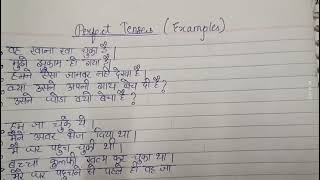 Perfect Tenses (Examples)
वह खाना खा चुका है।
मुझे जुकाम हो गया है।
हमने ऐसा जानवर नहीं देखा है।
क्या उसने अपनी गाय बेच दी है?
उसने घोड़ा क्यों बेचा है?
हम जा चुके थे।
मैंने उत्तर भेज दिया था।
मैं घर पहुंच चुकी थी।
बच्चा कुलफी खत्म कर चुका था।
मेरे घर पहुंचने से पहले ही वह जा